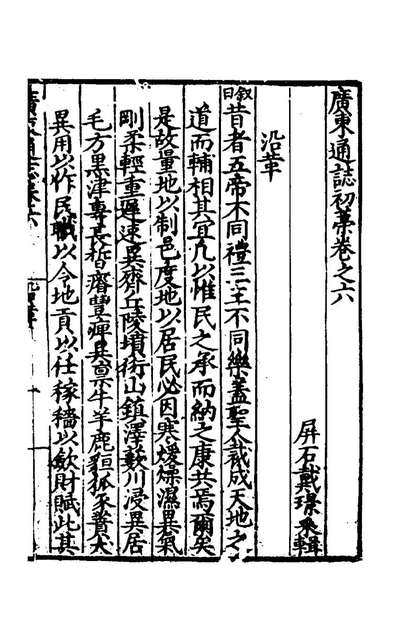 廣東通誌初藁卷之六
屏石戴璟采輯
沿革
叙曰昔者五帝不同禮三王不同樂蓋聖人裁成天地之
道而輔相其宜凡以惟民之承而納之康共焉爾矣
是故量地以制邑度地以居民必因寒煖燥濕異氣
剛柔輕重遲速異齊丘陵墳衍山鎮澤藪川浸異居
毛方黑津專長皙瘠豐痺異禀牛羊鹿狟貐狐豕蕡犬
異用以作民職以令地貢以任稼穡以斂財賦此其